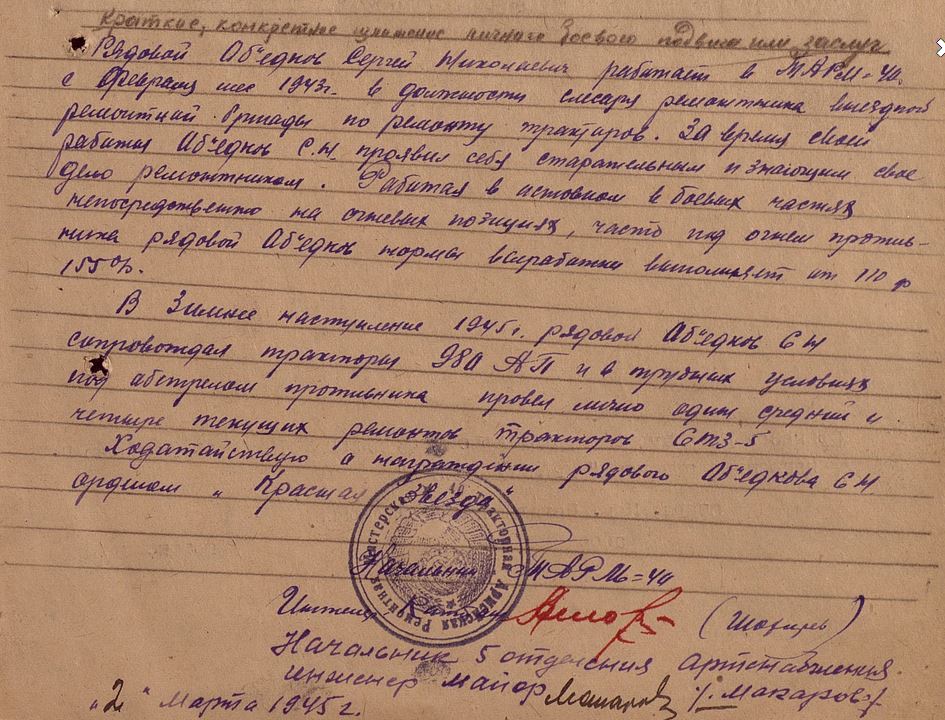 Краткие, конкретное изложение личного боевого подвига или заслуг
Рядовой Объедков Сергей Николаевич работает в ТАРМ-40
с февраля мес 1943г. в должности слесаря ремонтника выездной
ремонтной бригады по ремонту тракторов. За время своей
работы Объедков С.Н. проявил себя старательным и знающим свое
дело ремонтником. Работая в основном в боевых частях
непосредственно на огневых позициях, часто под огнем против-
ника рядовой Объедков нормы выработки выполняет от 110 до
155%.
В Зимнее наступление 1945г. рядовой Объедков С Н
сопровождал тракторы 980 АП и в трудных условиях
под обстрелом противника провел лично один средний и
четыре текущих ремонтов тракторов СТЗ-5
Ходатайствую о награждении рядового Объедкова С Н.
орденом „Красная Звезда"
Начальник ТАРМ-40
Инженер Капитан
Начальник 5 отделения Артснабжения
инженер майор /Макаров/
„2" Марта 1945 г.